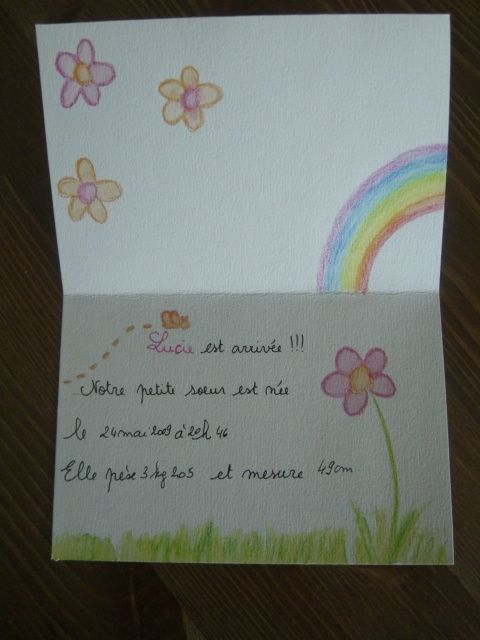 Lucie est arrivée !!!
Notre petite soeur est née
le 24 mai 2009 à 20h 46
Elle pèse 3 kg 205 et mesure 49cm